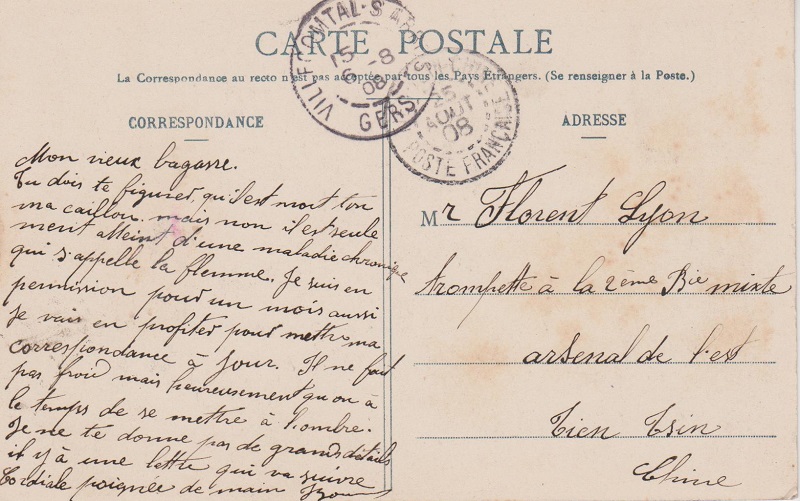 CARTE POSTALE
La Correspondance au recto n'est pas acceptée par tous les Pays Étrangers. (Se renseigner à la Poste.)
VILLECOMTAL-S-ARROS
15 - 8
08
GERS
25
AOUT
08
POSTE FRANÇAISE
CORRESPONDANCE
Mon vieux bagasse.
Tu dois te figurer qu'il est mort ton
ma caillou, mais non il est seule
ment atteint d'une maladie chronique
qui s'appelle la flemme. Je suis en
permission pour un mois aussi
je vais en profiter pour mettre ma
correspondance à jour. Il ne fait
pas froid mais heureusement qu'on à
le temps de se mettre à l'ombre.
Je ne te donne pas de grands détails
il y à une lettre qui va suivre
Cordiale poignée de main
ADRESSE
Mr Florent Lyon
trompette à la 2ème Bie mixte
arsenal de l'est
Tien Tsin
Chine